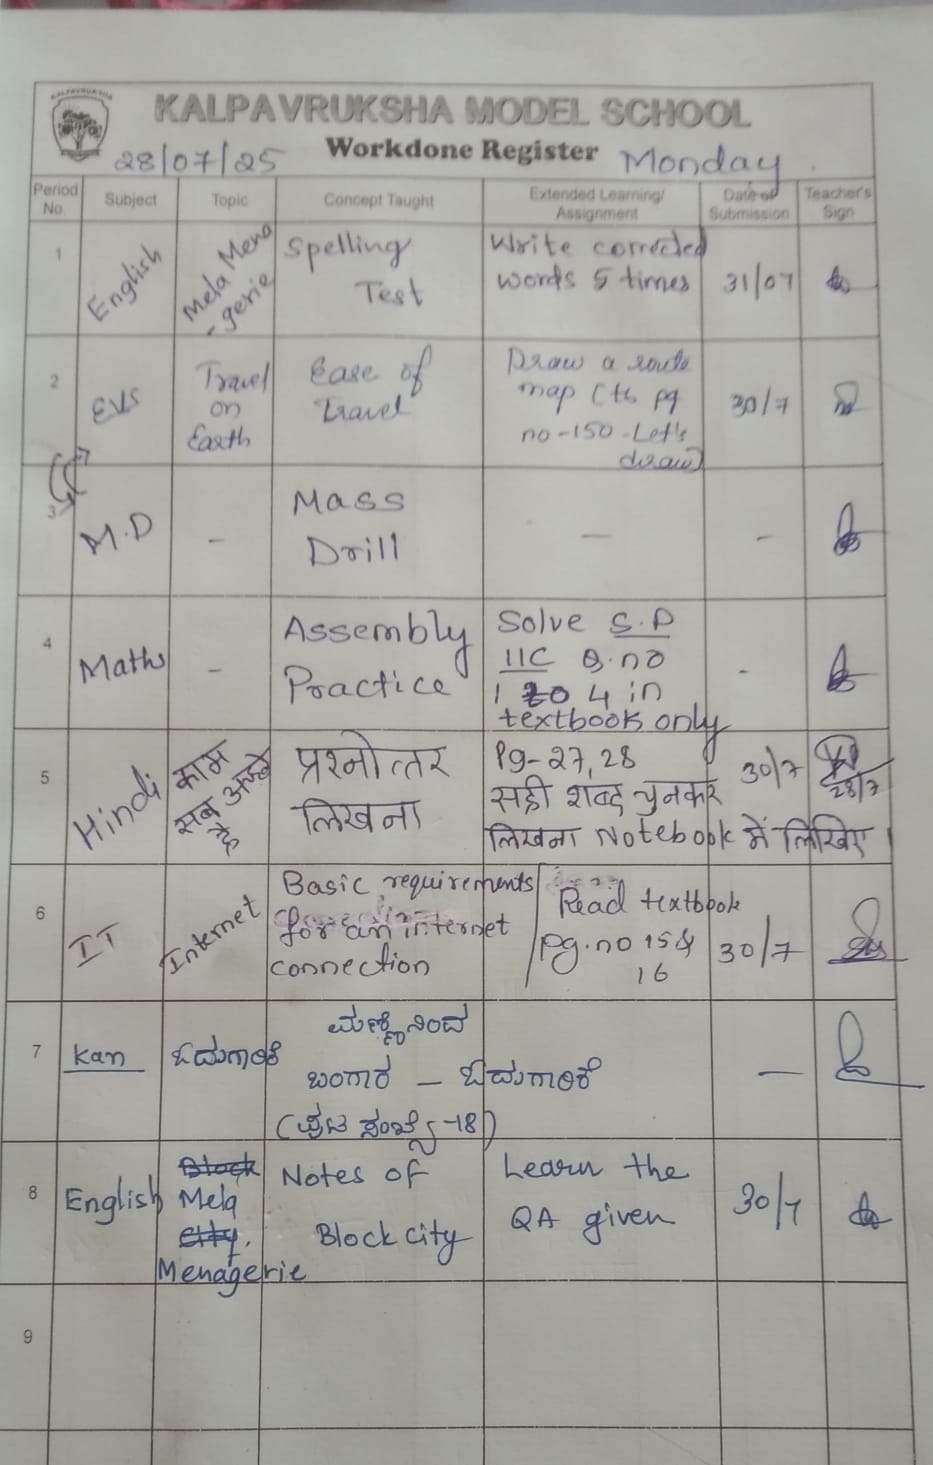 KALPAVRUKSHA
KALPAVRUKSHA MODEL SCHOOL
28/07/25 Workdone Register Monday
Period No. Subject Topic Concept Taught Extended Learning/ Assignment Date of Submission Teacher's Sign
1 English Mela Mena-gerie Spelling Test Write corrected words 5 times 31/07
2 EVS Travel on Earth Ease of Travel Draw a route map (tb pg no-150-Let's draw) 30/7
3 M.D - Mass Drill - -
4 Maths - Assembly Practice Solve S.P 11C Q.no 1 to 4 in textbook only -
5 Hindi काम सब अच्छे हैं प्रश्नोत्तर लिखना Pg-27,28 सही शब्द चुनकर लिखना Notebook में लिखिए 30/7 28/7
6 IT Internet Basic requirements for an internet connection Read textbook pg.no 15 & 16 30/7
7 Kan ಓದುಗಾರಿಕೆ ಮಣ್ಣಿನಿಂದ ಬಂಗಾರ - ಓದುಗಾರಿಕೆ (ಪುಟ ಸಂಖ್ಯೆ-18) -
8 English Block Mela City. Menagerie Notes of Block city Learn the QA given 30/7
9